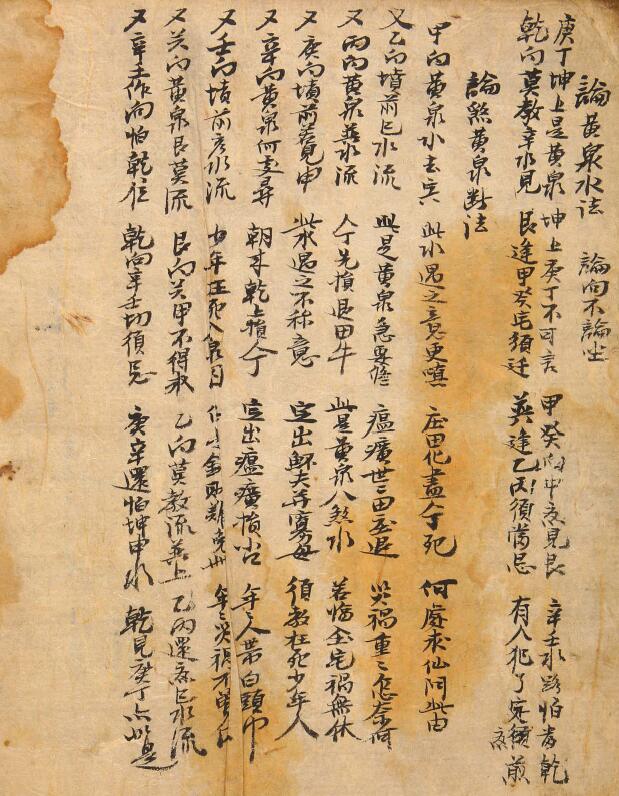 論黃泉水法　論向不論坐
庚丁坤上是黃泉　坤上庚丁不可言　甲癸向中見艮　辛壬水路怕當乾
乾向莫教辛水見　艮逢甲癸宅須迁　巽逢乙丙須當忌　有人犯了定須煎
論煞黃泉對法
甲向黃泉水去寅　此水遇之意更嗔　庄田化盡人死　何處求仙问此由
又乙向墳前巳水流　此是黃泉急要　瘟世二田退　災禍重二怎奈何
又丙向黃泉巽水流　先損退田牛　此是黃泉八煞水　若全宅禍無休
又庚向墳前若見申　此水遇之不称意　定出鰥夫并寡母　須教枉死少年人
又辛向黃泉何處尋　朝來乾上損人丁　定出瘟損小口　年二人帶白頭巾
又壬向墳前亥水流　少年枉死入泉　年二災禍不曾
又癸向黃泉艮莫流　艮向癸甲不得水　乙向莫教流巽上　乙丙還巳水流
又辛壬作向怕乾位　乾向辛壬切須忌　庚辛還怕坤申水　乾見庚丁点此是